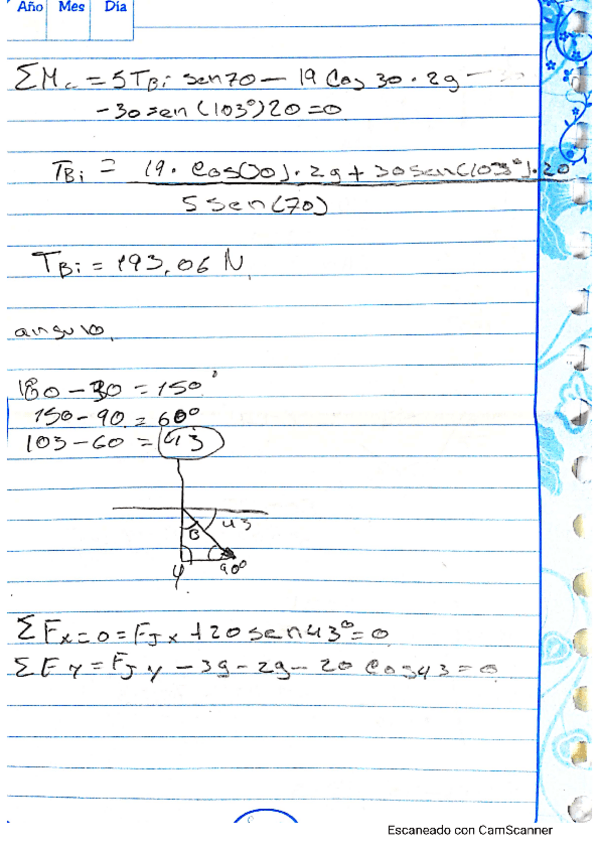 Año Mes Día
ΣM_c = 5T_Bi sen70 - 19 Cos 30 · 2g -
-30sen(103°)20=0
T_Bi = 19. Cos(30). 2g + 30sen(103°).20
5 Sen(70)
T_Bi = 193,06 N
angulo
180 - 30 = 150°
150 - 90 = 60°
103 - 60 = 43
B 43
y 90°
ΣFx=0=FJx +20sen43°=0
ΣFy=FJy -3g-2g- 20 Cos43=0
Escaneado con CamScanner